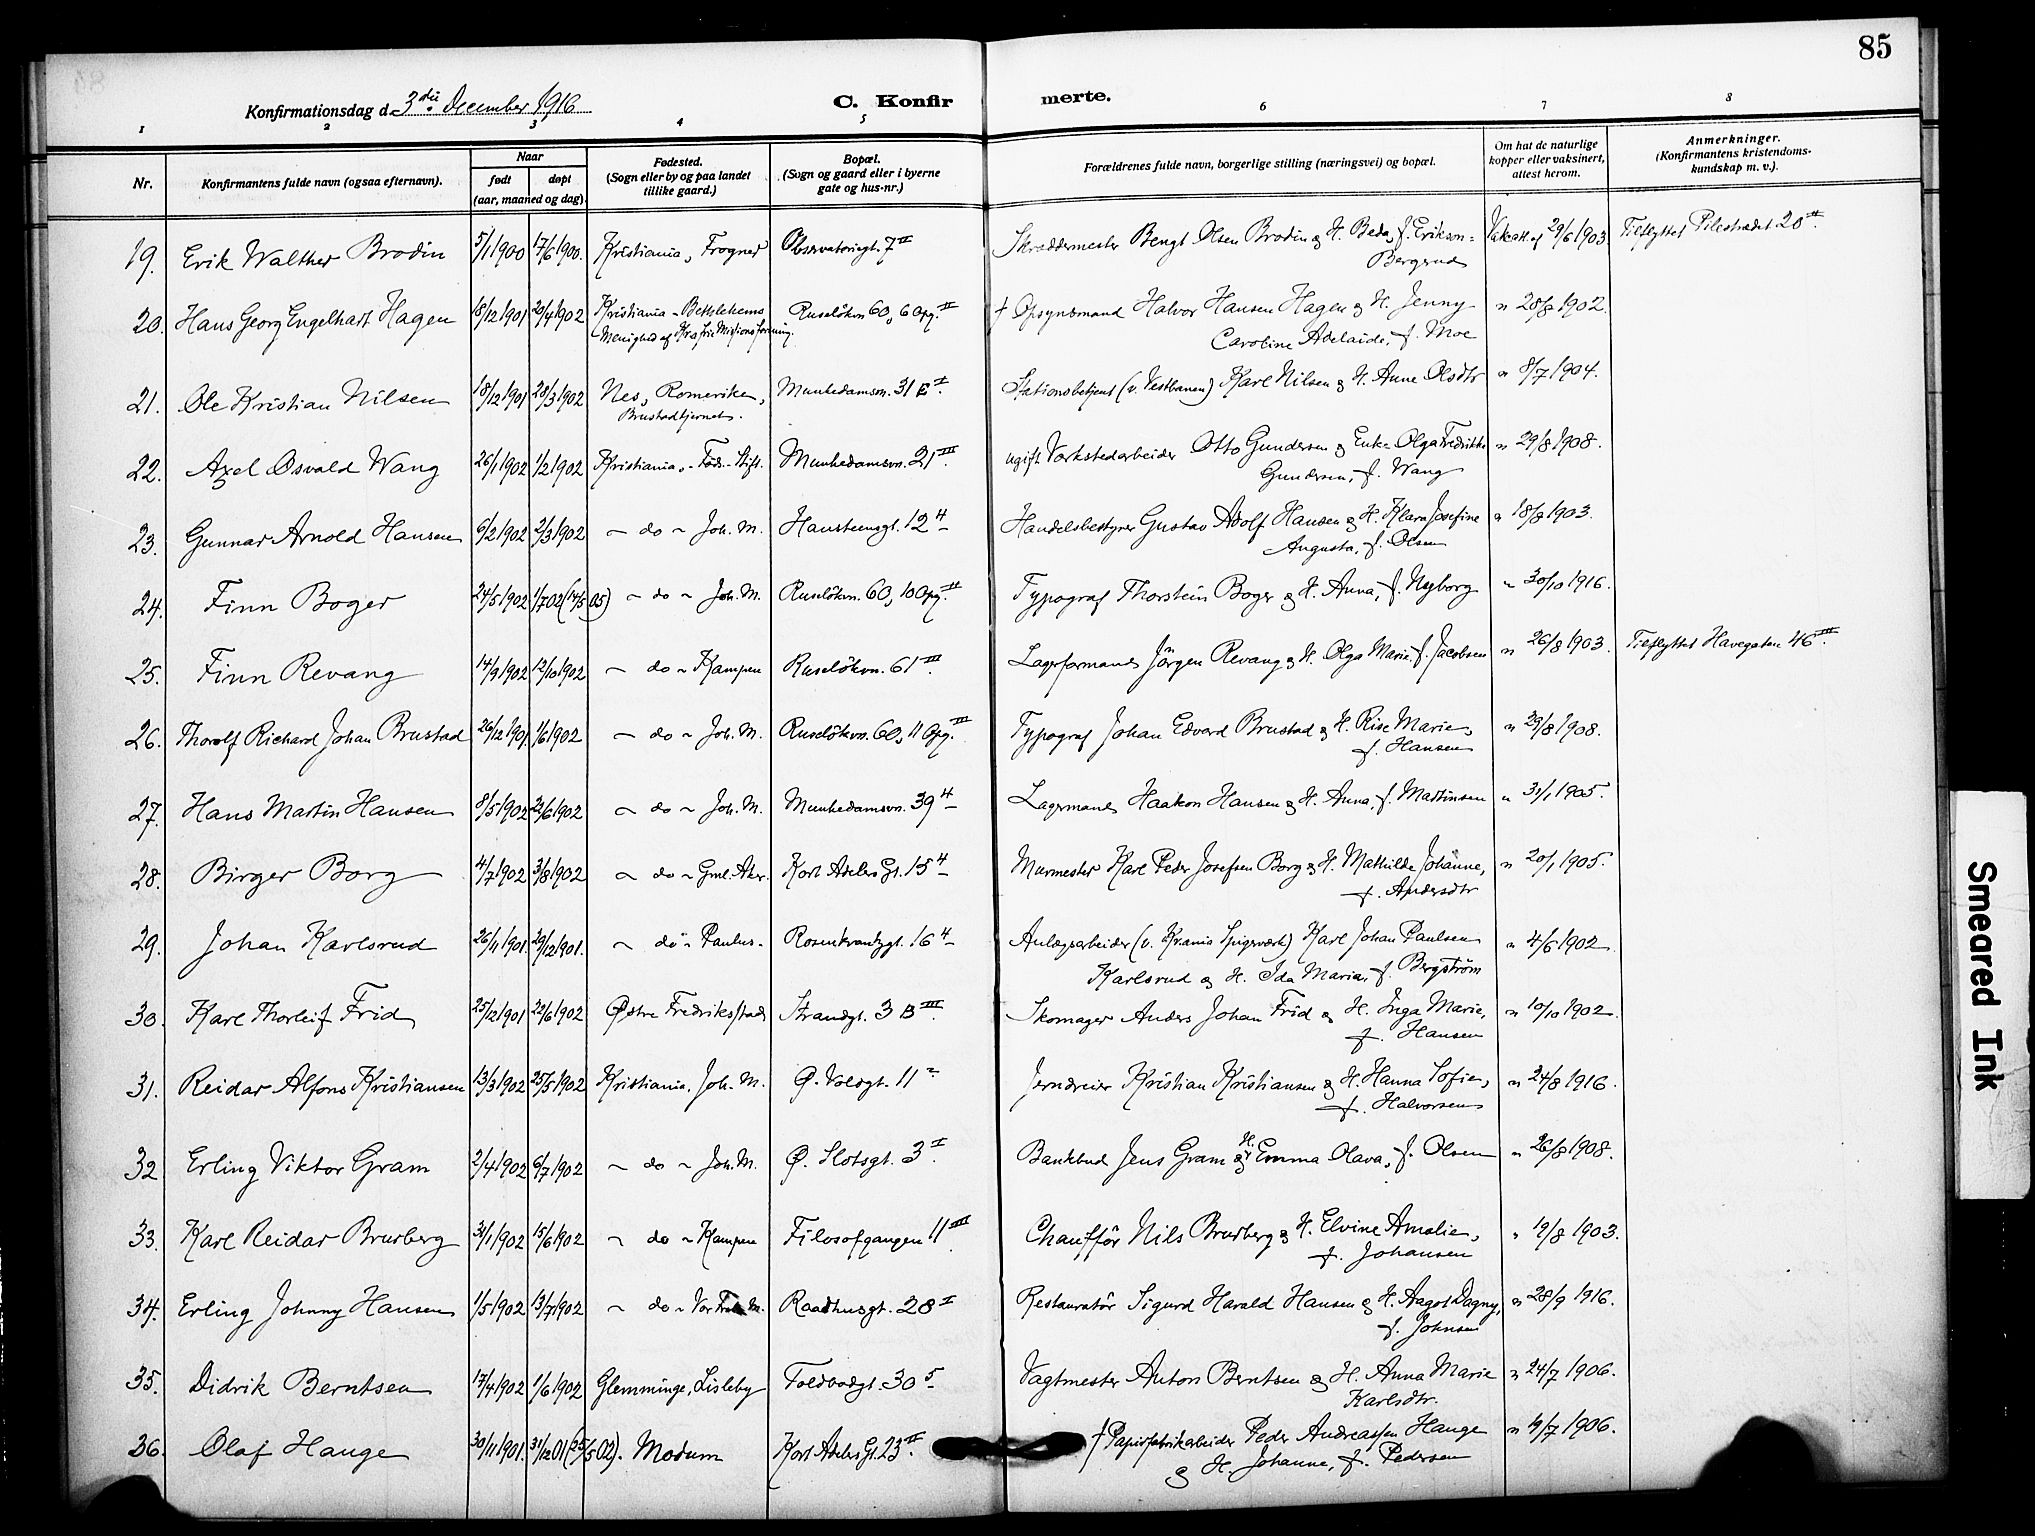 85
Konfirmationsdag d. 3die December 1916
C. Konfir merte.
1 2 3 4 5 6 7 8
Nr. Konfirmantens fulde navn (ogsaa efternavn). Naar født døpt (aar, maaned og dag). Fødested. (Sogn eller by og paa landet tillike gaard.) Bopæl. (Sogn og gaard eller i byerne gate og hus-nr.) Forældrenes fulde navn, borgerlige stilling (næringsvei) og bopæl. Om hat de naturlige kopper eller vaksinert, attest herom. Anmerkninger. (Konfirmantens kristendoms-kundskap m. v.).
19. Erik Walther Brodin 5/1 1900 17/6 1900. Kristiania, Frogner Observatoriegt. 7 II Skræddermester Bengt Olsen Brodin & H. Beda, f. Erikson- Vakatt. af 29/6 1903. Tilflyttet Pilestrædet 20 II
Bergerud
20. Hans Georg Engelhart Hagen 18/12 1901 20/4 1902 Kristiania - Bethlehems Ruseløkvn 60, 6 Opg. II † Opsynsmand Halvor Hansen Hagen & H. Jenny " 28/8 1902.
Menighed af Kra frie Missionsforening. Caroline Adelaide, f. Moe
21. Ole Kristian Nilsen 18/12 1901 28/3 1902 Nes, Romerike, Munkedamsvn. 31 E I. Stationsbetjent (v. Vestbanen) Karl Nilsen & H. Anne Olsdtr " 8/7 1904.
Brustadtjernet.
22. Axel Osvald Wang 26/1 1902 1/2 1902 Kristiania, - Føds.-Stift. Munkedamsvn. 21 III. ugift Værkstedarbeider Otto Gundersen & Enke Olga Fredrikke " 29/8 1908.
Gundersen, f. Wang
23. Gunnar Arnold Hansen 6/2 1902 2/3 1902 - do - Joh. M. Hansteensgt. 12 4 Handelsbestyrer Gustav Adolf Hansen & H. Klara Josefine " 18/8 1903.
Augusta, f. Olsen
24. Finn Boger 24/5 1902 1/7 02 (14/5 05) - do - Joh. M. Ruseløkvn. 60, 10 Opg. II Typograf Thorstein Boger & H. Anna, f. Nyborg " 30/10 1916.
25. Finn Revang 14/9 1902 12/10 1902 - do - Kampen Ruseløkvn. 61 III. Lagerformand Jörgen Revang & H. Olga Marie, f. Jacobsen " 26/8 1903. Tilflyttet Havegaten 46 III.
26. Thorolf Richard Johan Brustad 26/12 1901. 1/6 1902 - do - Joh. M. Ruseløkvn. 60, 11 Opg. III Typograf Johan Edvard Brustad & H. Rise Marie, " 29/8 1908.
f. Hansen
27. Hans Martin Hansen 8/5 1902 22/6 1902 - do - Joh. M. Munkedamsvn. 39 4 Lagermand Haakon Hansen & H. Anna, f. Martinsen " 31/1 1905.
28. Birger Borg 4/7 1902 3/8 1902 - do - Gml. Aker. Kort Adelers Gt. 15 4 Murmester Karl Peder Josefsen Borg & H. Mathilde Johanne, " 20/1 1905.
f. Andersdtr
29. Johan Karlsrud 26/11 1901. 29/12 1901. - do - Paulus - Rosenkrantzgt. 16 4 Anlægsarbeider (v. Krania Spigerværk) Karl Johan Paulsen " 4/6 1902
Karlsrud & H. Ida Maria, f. Bergström
30. Karl Thorleif Frid 25/12 1901 22/6 1902 Østre Fredriksstad Strandgt. 3 B III. Skomager Anders Johan Frid & H. Inga Marie, " 10/10 1902.
f. Hansen
31. Reidar Alfons Kristiansen 13/3 1902 25/5 1902 Kristiania, Joh. M. Ø. Voldgt. 11 Jerndreier Kristian Kristiansen & H. Hanna Sofie, " 24/8 1916.
f. Halvorsen
32 Erling Viktor Gram 2/4 1902 6/7 1902 - do - Joh. M. Ø. Slotsgt. 3 I. Bankbud Jens Gram & H. Emma Olava, f. Olsen " 26/8 1908.
33. Karl Reidar Brurberg 31/1 1902 15/6 1902 - do - Kampen Filosofgangen 11 III. Chaufför Nils Brurberg & H. Elvine Amalie, " 19/8 1903.
f. Johansen
34. Erling Johnny Hansen 1/5 1902 13/7 1902 - do - Vor Frels. M. Raadhusgt. 28 I Restauratör Sigurd Harald Hansen & H. Aagot Dagny, " 28/9 1916.
f. Johnsen
35. Didrik Berntsen 17/4 1902 1/6 1902 Glemminge, Lisleby Toldbodgt. 30 5 Vagtmester Anton Berntsen & H. Anna Marie " 24/7 1906.
Karlsdtr.
36. Olaf Hauge 30/11 1901. 31/12 01 (25/5 02). Modum Kort Adelers Gt. 23 II. † Papirfabrikarbeider Peder Andreassen Hauge " 4/7 1906.
& H. Johanne, f. Pedersen
Smeared Ink